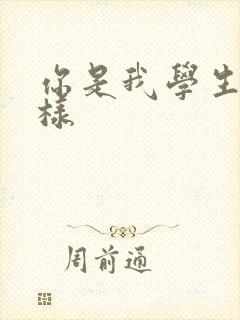 你是我學生
樣
周前通